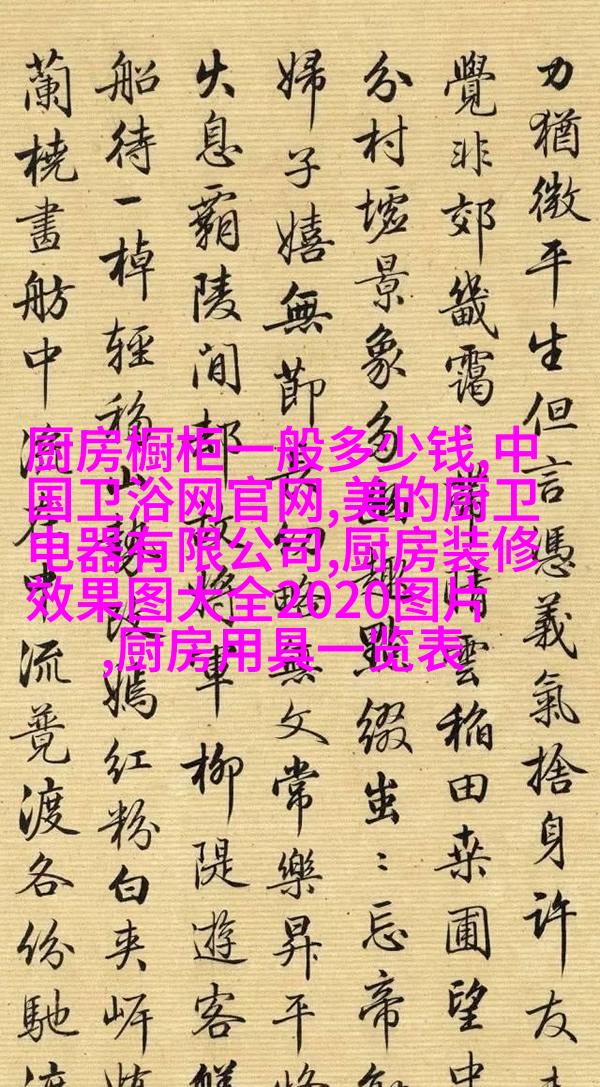 力猶微平生但言憑義氣捨身許友
覺非郊畿靄帶晴雲稻田桑圃望中
分村墟景象多幽趣點綴出忘帝
婦子嬉無節略無文常樂昇平
失息霸陵間故將軍柳隄遊客
船待一棹輕移嫣紅粉白夾岍
蘭橈畫舫中流覽渡各份馳
厨房橱柜一般多少钱,中
国卫浴网官网,美的厨卫
电器有限公司,厨房装修
效果图大全2020图片
,厨房用具一览表